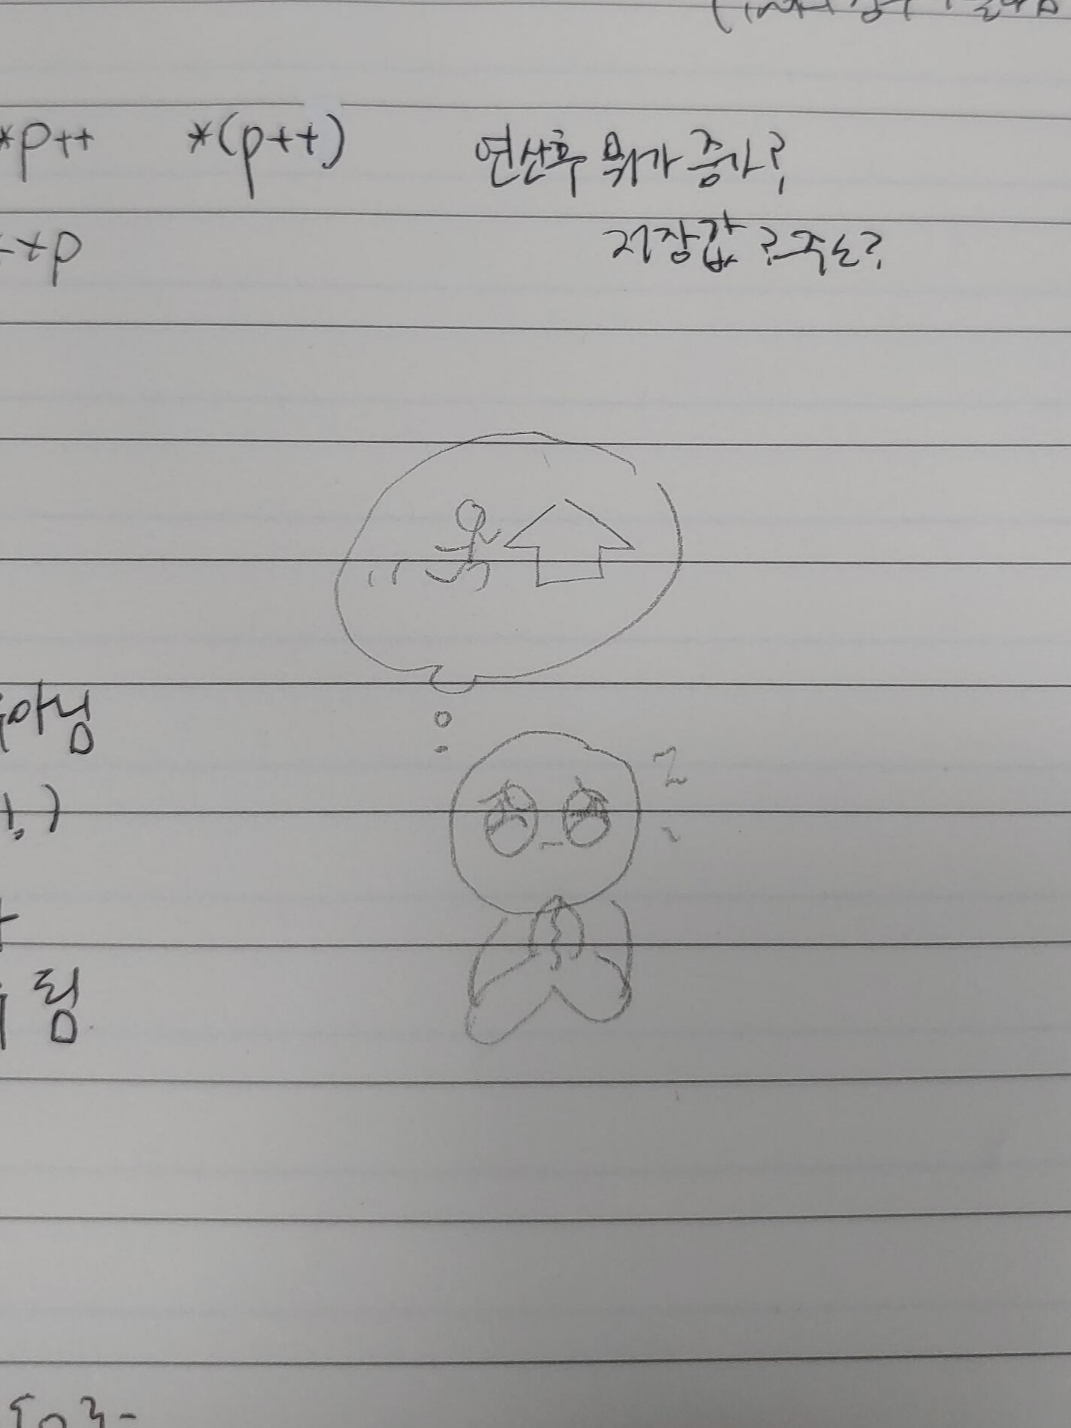 *p++ *(p++) 연산후 뭐가 증가?
+p 저장값? 주소?
아님
!)
됨